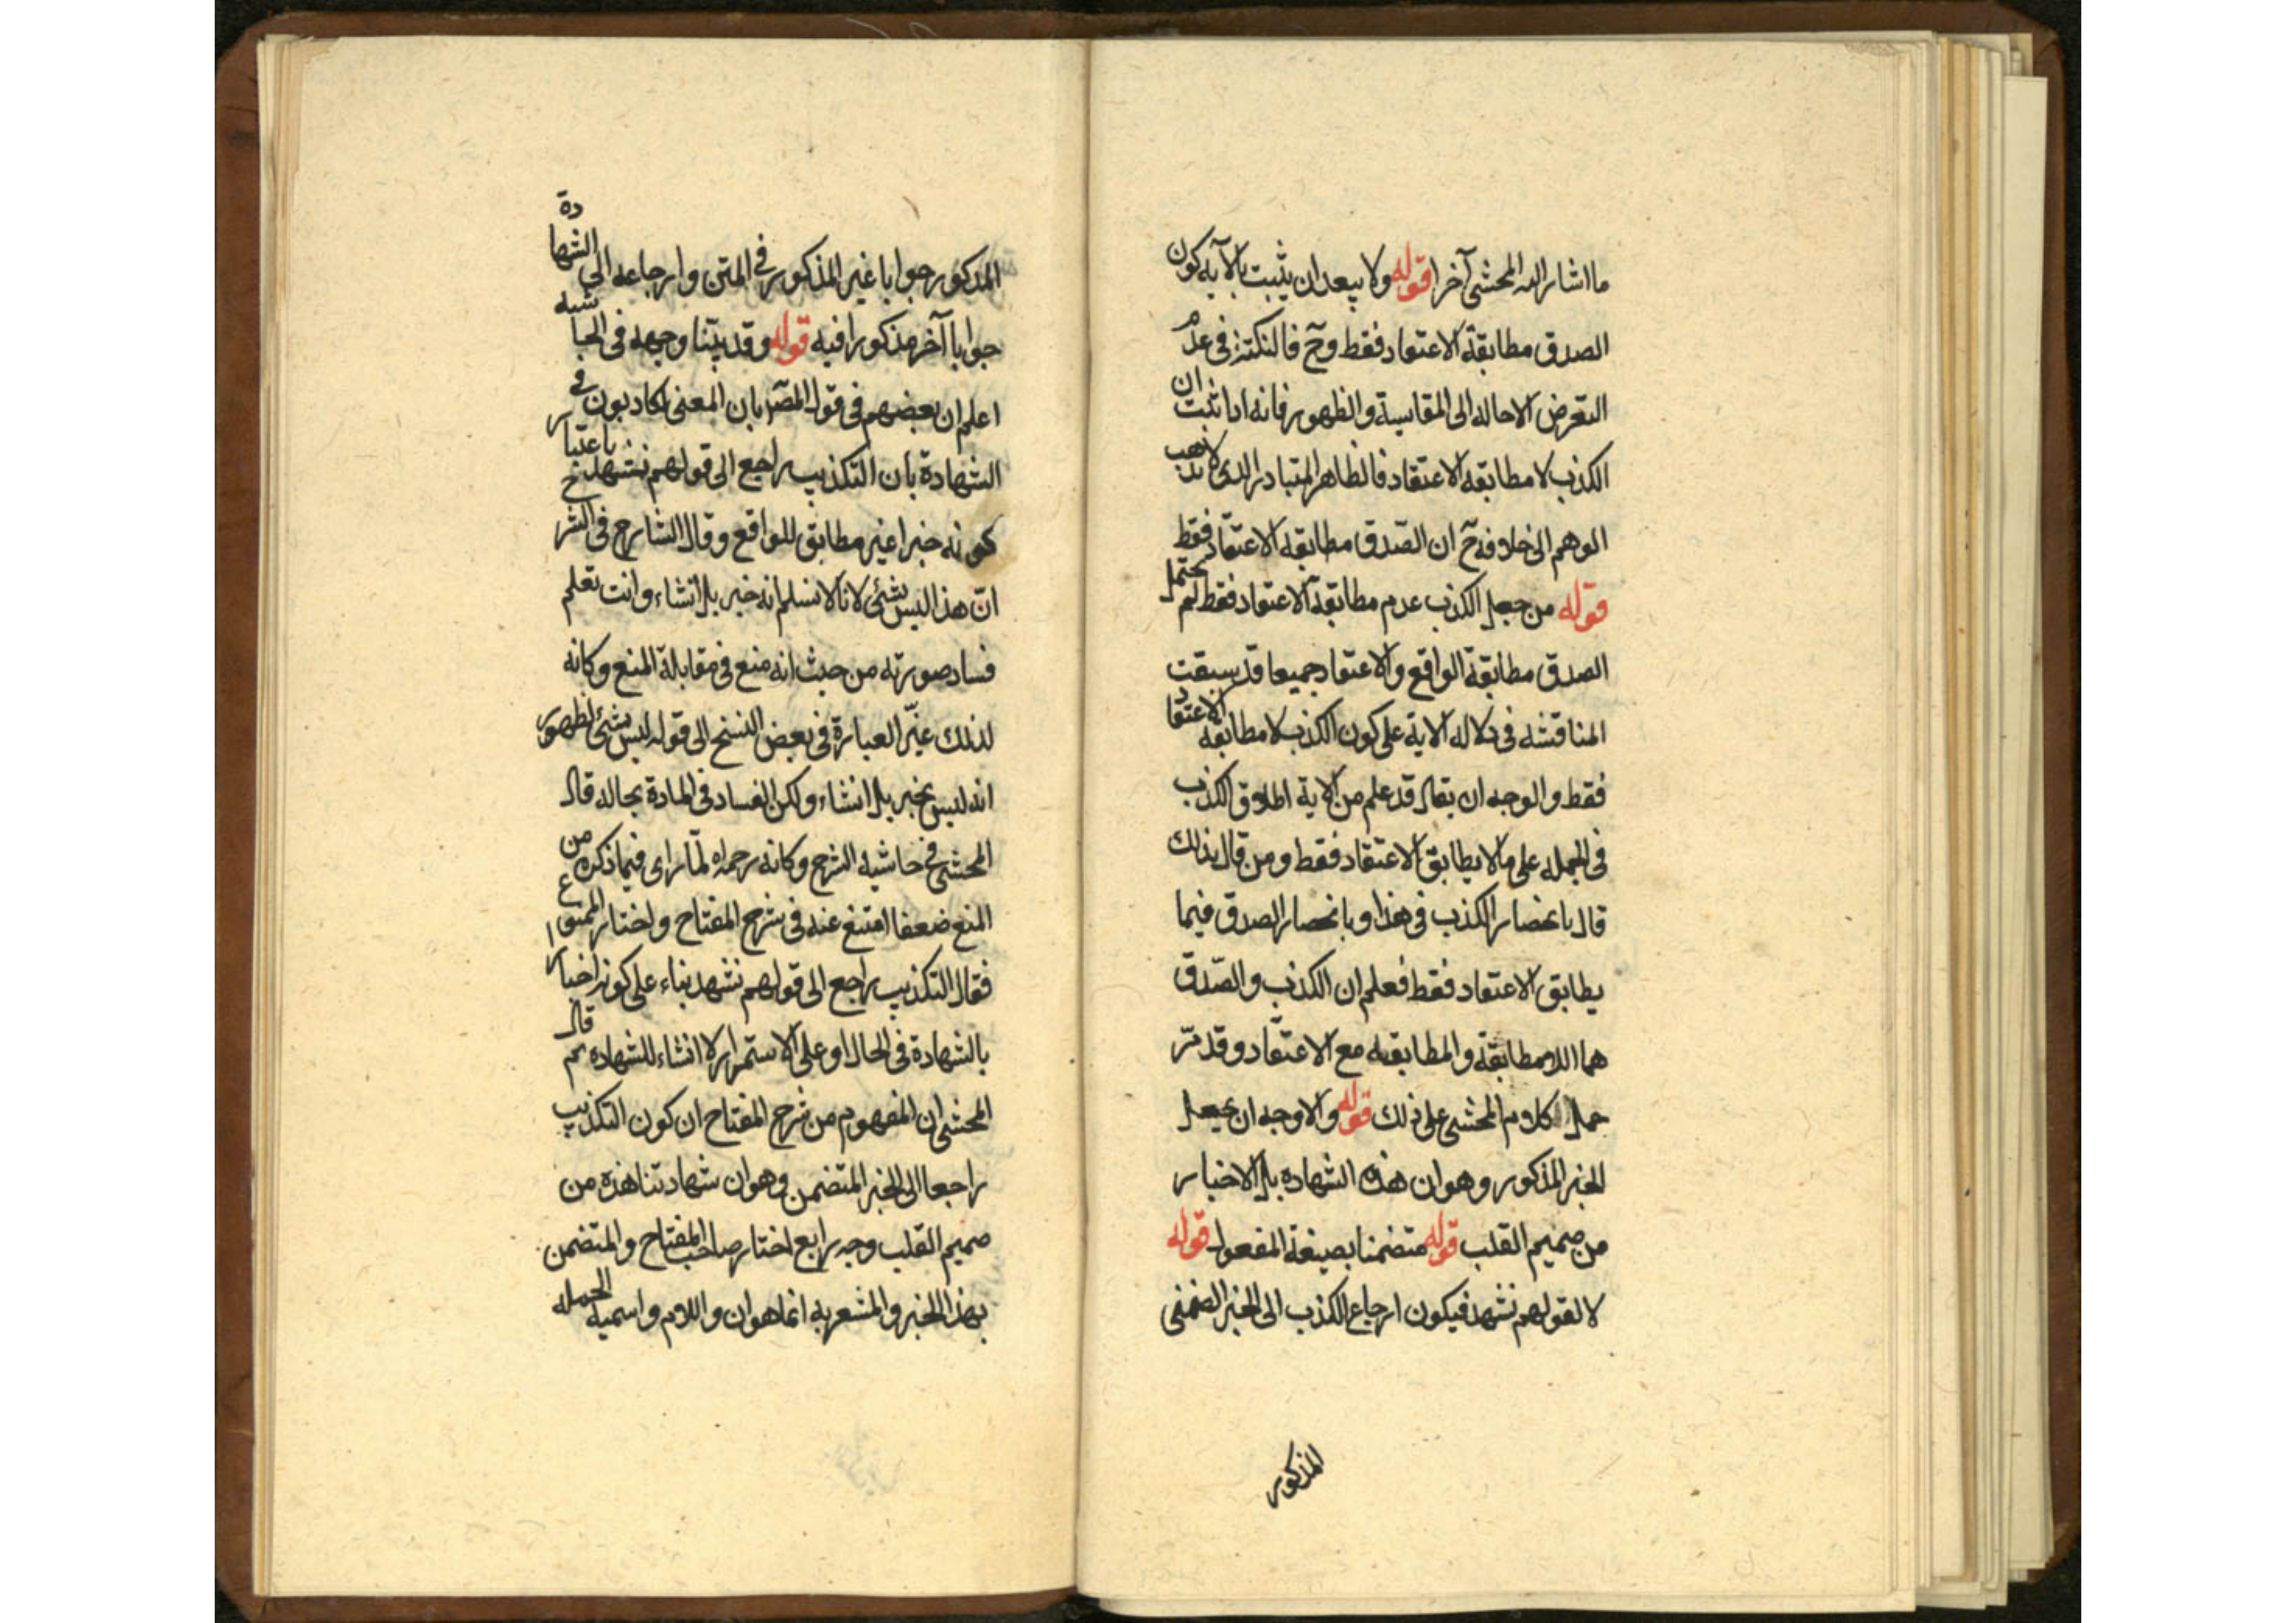 ما اشار اليه المحشي آخرا قوله ولا يبعد ان يثبت بالآية كون
الصدق مطابقة الاعتقاد فقط وح فالنكتة في عدم
التعرض الاحالة الى المقايسة والظهور فانه اذا ثبت ان
الكذب لا مطابقة الاعتقاد فالظاهر المتبادر الذي لا يذهب
الوهم الى خلافه ح ان الصّدق مطابقة الاعتقاد فقط
قوله من جعل الكذب عدم مطابقة الاعتقاد فقط لم يحتمل
الصدق مطابقة الواقع والاعتقاد جميعا قد سبقت
المناقشة في دلالة الاية على كون الكذب لا مطابقة الاعتقاد
فقط والوجه ان يقال قد علم من الاية اطلاق الكذب
في الجملة على ما لا يطابق الاعتقاد فقط ومن قال بذلك
قال بانحصار الكذب في هذا وبانحصار الصدق فيما
يطابق الاعتقاد فقط فعلم ان الكذب والصّدق
هما اللامطابقة والمطابقة مع الاعتقاد وقد مرّ
حمل كلام المحشي على ذلك قوله والاوجه ان يجعل
الخبر المذكور وهو ان هذه الشهادة بل الاخبار
من صميم القلب قوله متضمنا بصيغة المفعول قوله
لا لقولهم نشهد فيكون ارجاع الكذب الى الخبر الضمني
المذكور
المذكور جوابا غير المذكور في المتن وارجاعه الى الشهادة
جوابا آخر مذكورا فيه قوله وقد بيّنا وجهه في الحاشية
اعلم ان بعضهم في قول المص بان المعنى لكاذبون في
الشهادة بان التكذيب راجع الى قولهم نشهد باعتبار
كونه خبرا غير مطابق للواقع وقال الشارح في الشرح
انّ هذا ليس بشئ لانا لا نسلم انه خبر بل انشاء وانت تعلم
فساد صورته من حيث انه منع في مقابلة المنع وكانه
لذلك غيّر العبارة في بعض النسخ الى قوله ليس بشئ لظهور
انه ليس بخبر بل انشاء ولكن الفساد في المادة بحاله قال
المحشي في حاشية الشرح وكانه رحمه لمّا راى فيما ذكره من
المنع ضعفا امتنع عنه في شرح المفتاح واختار الممنوع
فقال التكذيب راجع الى قولهم نشهد بناء على كونه اخبارا
بالشهادة في الحال او على الاستمرار لا انشاء للشهادة ثم قال
المحشي ان المفهوم من شرح المفتاح ان كون التكذيب
راجعا الى الخبر المتضمن وهو ان شهادتنا هذه من
صميم القلب وجه رابع اختار صاحب المفتاح والمتضمن
بهذا الخبر والمشعر به انما هو ان واللام واسمية الجملة